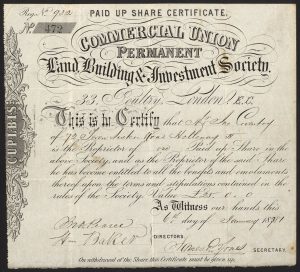 Reg. No. 922
PAID UP SHARE CERTIFICATE.
No 472
COMMERCIAL UNION
PERMANENT
Land Building & Investment Society,
33. Poultry. London E.C.
This is to Certify that
of 72
Holloway N
is the Proprietor of one Paid up Share in the
above Society and as the Proprietor of the said Share
he has become entitled to all the benefits and emoluments
thereof upon the terms and stipulations contained in the
rules of the Society.
As Witness our hands this
day of January
DIRECTORS.
H. Baker
SECRETARY.
On withdrawal of the Share this Certificate must be given up.